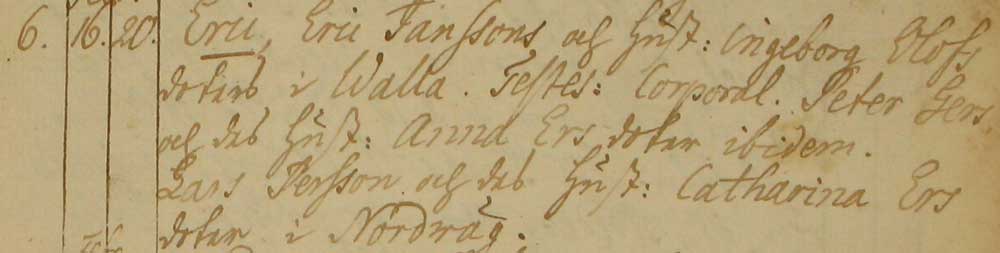 6. 16. 20. Eric, Eric Janssons och Hust: Ingeborg Olofs
doters i Walla. Testes: Corporal. Peter Gers
och des Hust: Anna Ers doter ibidem.
Lars Persson och des Hust: Catharina Ers
doter i Nordwåg.